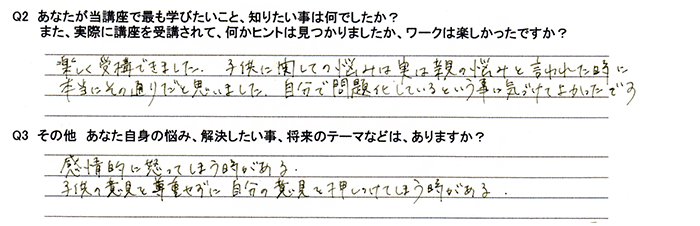 Q2 あなたが当講座で最も学びたいこと、知りたい事は何でしたか？
また、実際に講座を受講されて、何かヒントは見つかりましたか、ワークは楽しかったですか？
楽しく受構できました. 子供に関しての悩みは実は親の悩みと言われた時に
本当にその通りだと思いました. 自分で問題化しているという事に気づけてよかったです
Q3 その他 あなた自身の悩み、解決したい事、将来のテーマなどは、ありますか？
感情的に怒ってしまう時がある.
子供の意見を尊重せずに自分の意見を押しつけてしまう時がある.